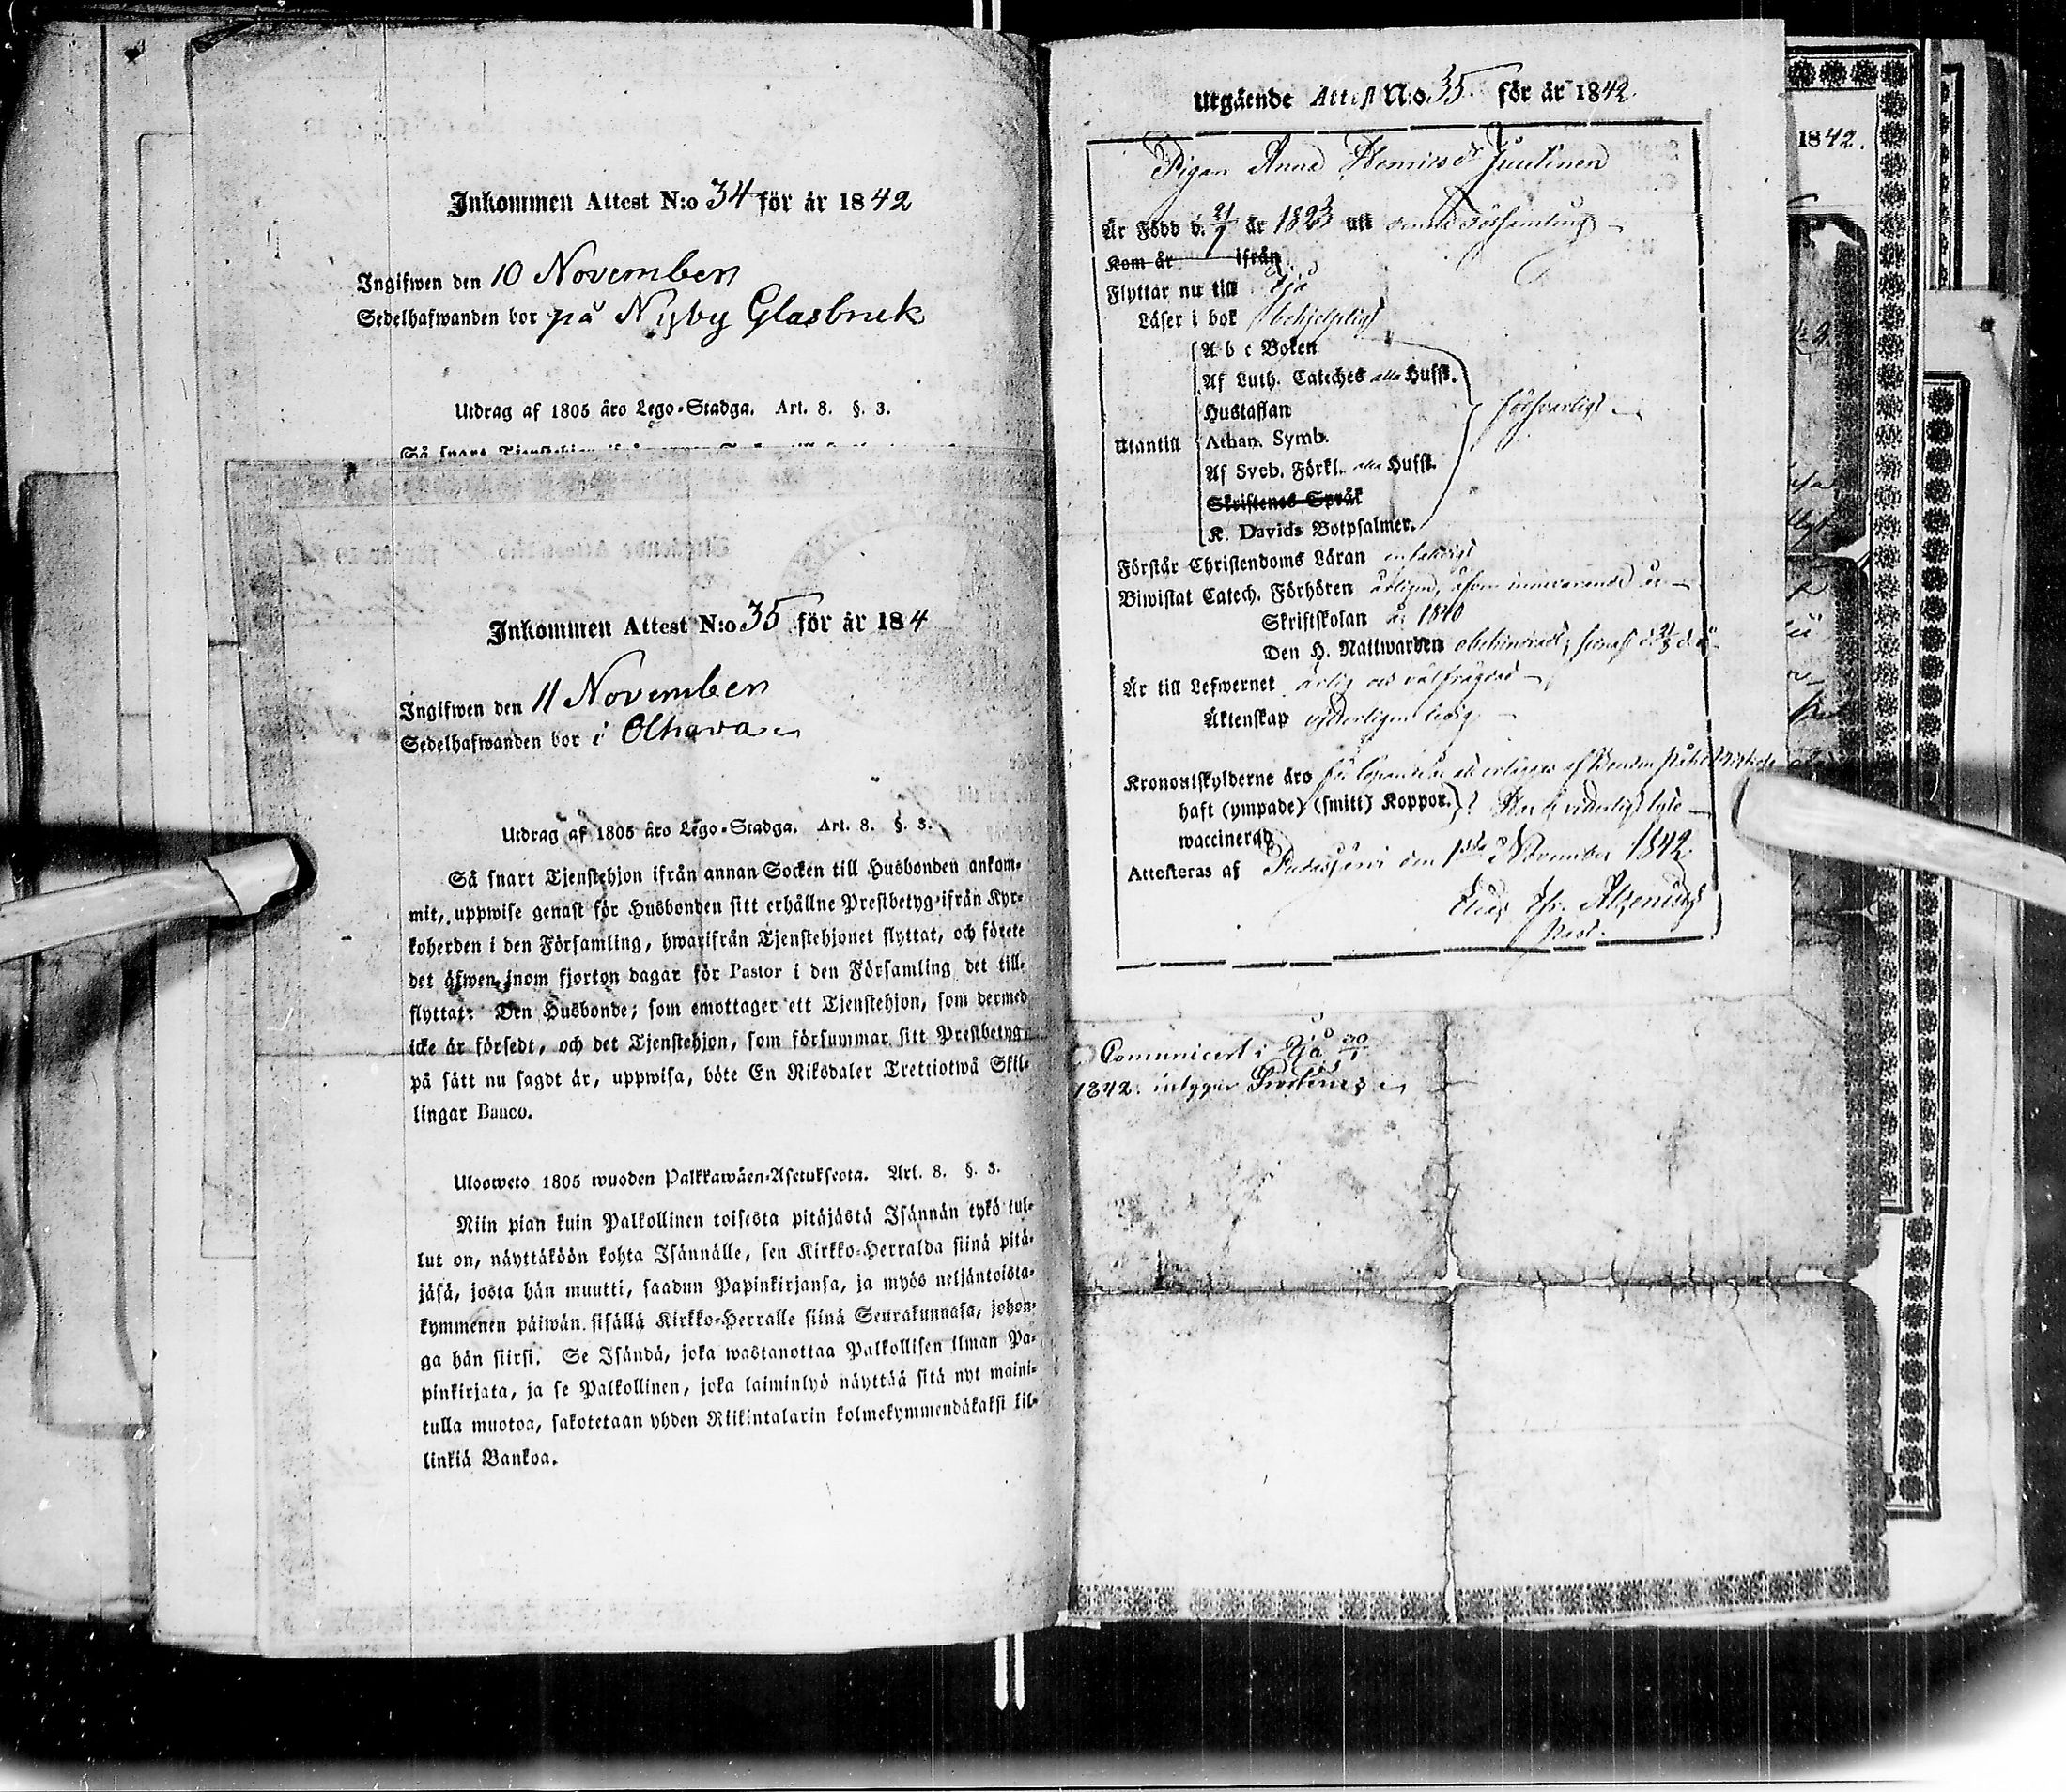 Inkommen Attest N:o 34 för år 1842
Ingifwen den 10 November
Sedelhafwanden bor på Nyby Glasbruk
Utdrag af 1805 åro Lego-Stadga. Art. 8. §. 3.
Inkommen Attest N:o 35 för år 184
Ingifwen den 11 November
Sedelhafwanden bor i Olhava
Utdrag af 1805 åro Lego-Stadga. Art. 8. §. 3.
Så snart Tjenstehjon ifrån annan Socken till Husbonden ankom-
mit, uppwise genast för Husbonden sitt erhållne Prestbetyg ifrån Kyr-
koherden i den Församling, hwarifrån Tjenstehjonet flyttat, och förete
det äfwen inom fjorton dagar för Pastor i den Församling det till-
flyttat: Den Husbonde, som emottager ett Tjenstehjon, som dermed
icke är försedt, och det Tjenstehjon, som försummar sitt Prestbetyg,
på sätt nu sagdt är, uppwisa, böte En Riksdaler Trettiotwå Skil-
lingar Banco.
Uloosweto 1805 wuoden Palkkawäen-Asetuksesta. Art. 8. §. 3.
Niin pian kuin Palkollinen toisesta pitäjästä Isännän tykö tul-
lut on, näyttäköön kohta Isännälle, sen Kirkko-Herralda siinä pitä-
jäsä, josta hän muutti, saadun Papinkirjansa, ja myös neljäntoista-
kymmenen päiwän sisällä Kirkko-Herralle siinä Seurakunnasa, johon-
ga hän siirsi. Se Isändä, joka wastanottaa Palkollisen ilman Pa-
pinkirjata, ja se Palkollinen, joka laiminlyö näyttää sitä nyt maini-
tulla muotoa, sakotetaan yhden Riikintalarin kolmekymmendäkaksi kil-
linkiä Bankoa.
Utgående Attest N:o 35 för år 1842.
Pigan Anna Henricsdr Juutinen
Är Född d. 21/7 år 1823 uti denna Församling
Kom år ifrån
Flyttar nu till Ijo
Läser i bok behjelpligt
A b c Boken
Af Luth. Cateches alla Hufst.
Hustaflan
försvarligt
Utantill Athan. Symb.
Af Sveb. Förkl. alla Hufst.
Skriftenes Språk
K. Davids Botpsalmer.
Förstår Christendoms Läran enfaldigt
Biwistat Catech. Förhören årligen, äfven innevarande år
Skriftskolan år 1840
Den H. Nattwarden obehindrad, senast d.
Är till Lefwernet ärlig och välfrägdad
Äktenskap vitterligen ledig
Kronoutskylderne äro
haft (ympade) (smitt) Koppor.
waccinerad
Attesteras af Pudasjärvi den 1sta November 1842
Past.
Comunicert i Ijo 30/
1842. intygar
1842.